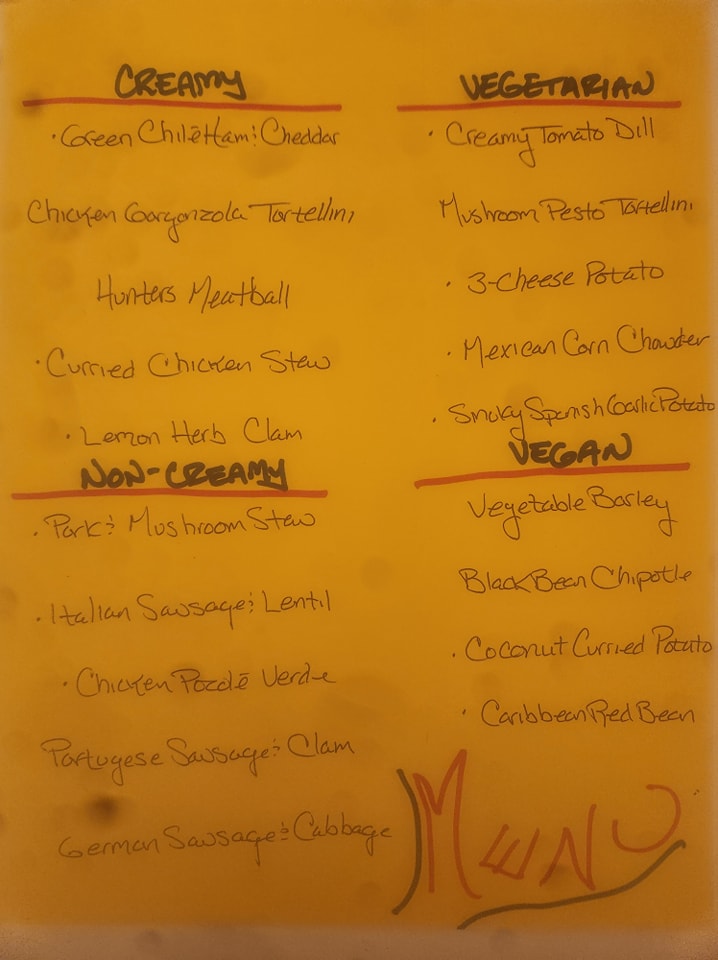 CREAMY
·Green Chilē Ham & Cheddar
Chicken Gorgonzola Tortellini
Hunters Meatball
·Curried Chicken Stew
·Lemon Herb Clam
NON-CREAMY
·Pork & Mushroom Stew
·Italian Sausage & Lentil
·Chicken Pozolē Verde
Portugese Sausage & Clam
German Sausage & Cabbage
VEGETARIAN
·Creamy Tomato Dill
Mushroom Pesto Tortellini
·3-Cheese Potato
·Mexican Corn Chowder
·Smoky Spanish Garlic Potato
VEGAN
Vegetable Barley
Black Bean Chipotle
·Coconut Curried Potato
·Caribbean Red Bean
MENU